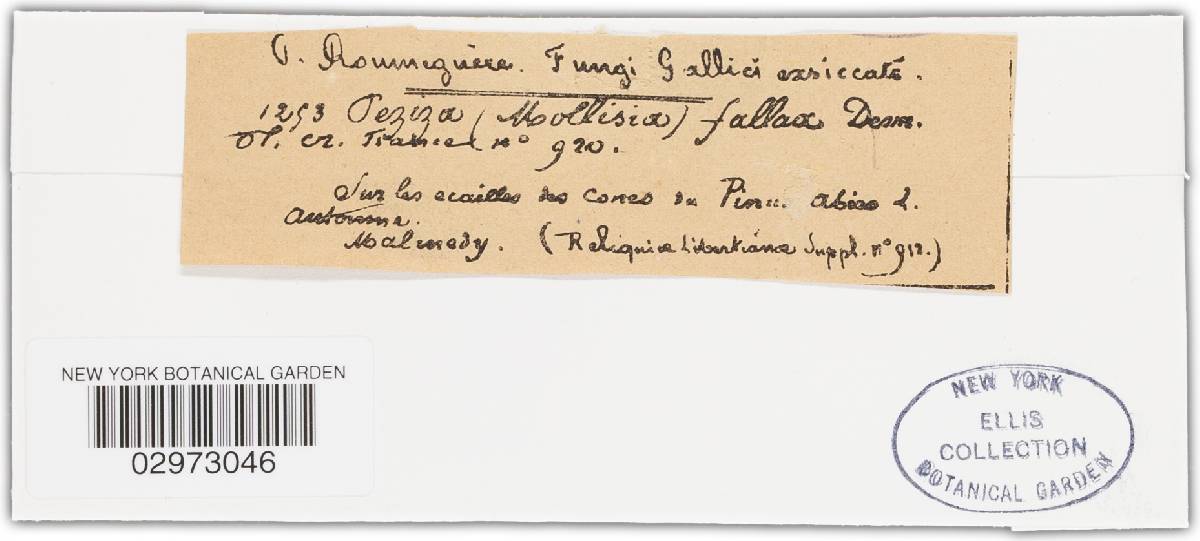 C. Roumeguère. Fungi Gallici exsiccati.
1253 Peziza (Mollisia) fallax Desm.
Pl. cr. France n° 920.
Sur les ecailles des cones du Pinus abies L.
Automne.
Malmedy. (Reliquiae Libertianae Suppl. n° 912.)
NEW YORK BOTANICAL GARDEN
02973046
NEW YORK
ELLIS
COLLECTION
BOTANICAL GARDEN